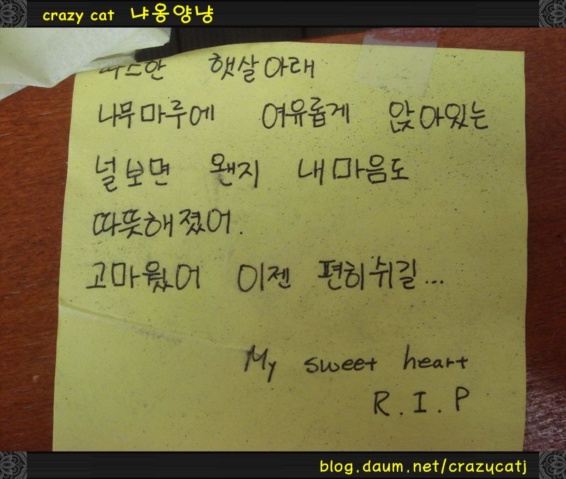 crazy cat 냐옹양냥
따스한 햇살아래
나무마루에 여유롭게 앉아있는
널보면 왠지 내마음도
따뜻해졌어.
고마웠어 이젠 편히쉬길...
My sweet heart
R.I.P
blog.daum.net/crazycatj